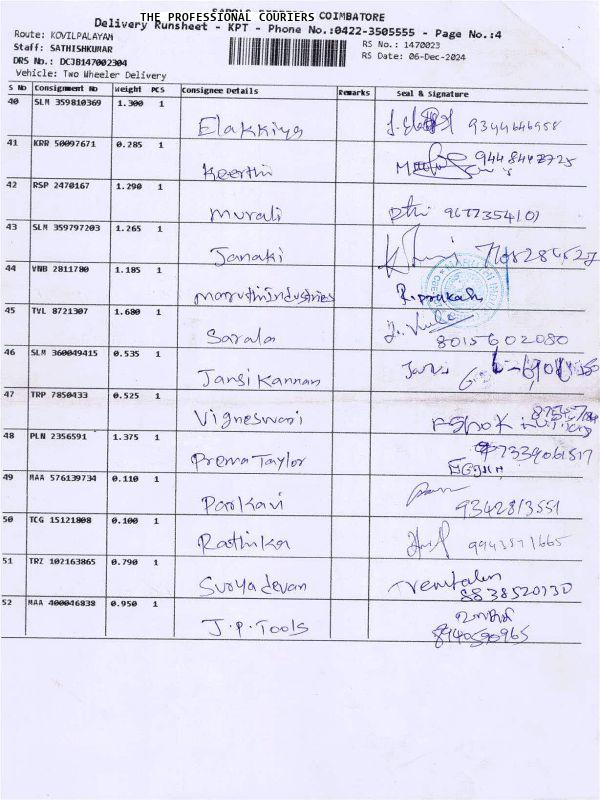 THE PROFESSIONAL COURIERS
COIMBATORE
Delivery Runsheet - KPT - Phone No.:0422-3505555 - Page No.:4
Route: KOVILPALAYAM
RS No.: 1470023
Staff: SATHISHKUMAR
RS Date: 06-Dec-2024
DRS No.: DCJB147002304
Vehicle: Two Wheeler Delivery
S No Consignment No Weight PCS Consignee Details Remarks Seal & Signature
40 SLM 359810369 1.300 1
Elakkiya 9344646958
41 KRR 50097671 0.285 1
Keerthi
42 RSP 2470167 1.290 1
Murali
43 SLM 359797203 1.265 1
Janaki
44 VNB 2811780 1.185 1
Maruthi Industries R. prakash
45 TVL 8721307 1.680 1
Sarala 8015602080
46 SLM 360049415 0.535 1
Jansi Kannan
47 TRP 7850433 0.525 1
Vigneswari
48 PLN 2356591 1.375 1
Prema Taylor 7339061817
49 MAA 576139734 0.110 1
Parkavi 9342813551
50 TCG 15121808 0.100 1
Rathika 9943571665
51 TRZ 102163865 0.790 1
Suryadevan 8838520730
52 MAA 400046838 0.950 1
J.P.Tools